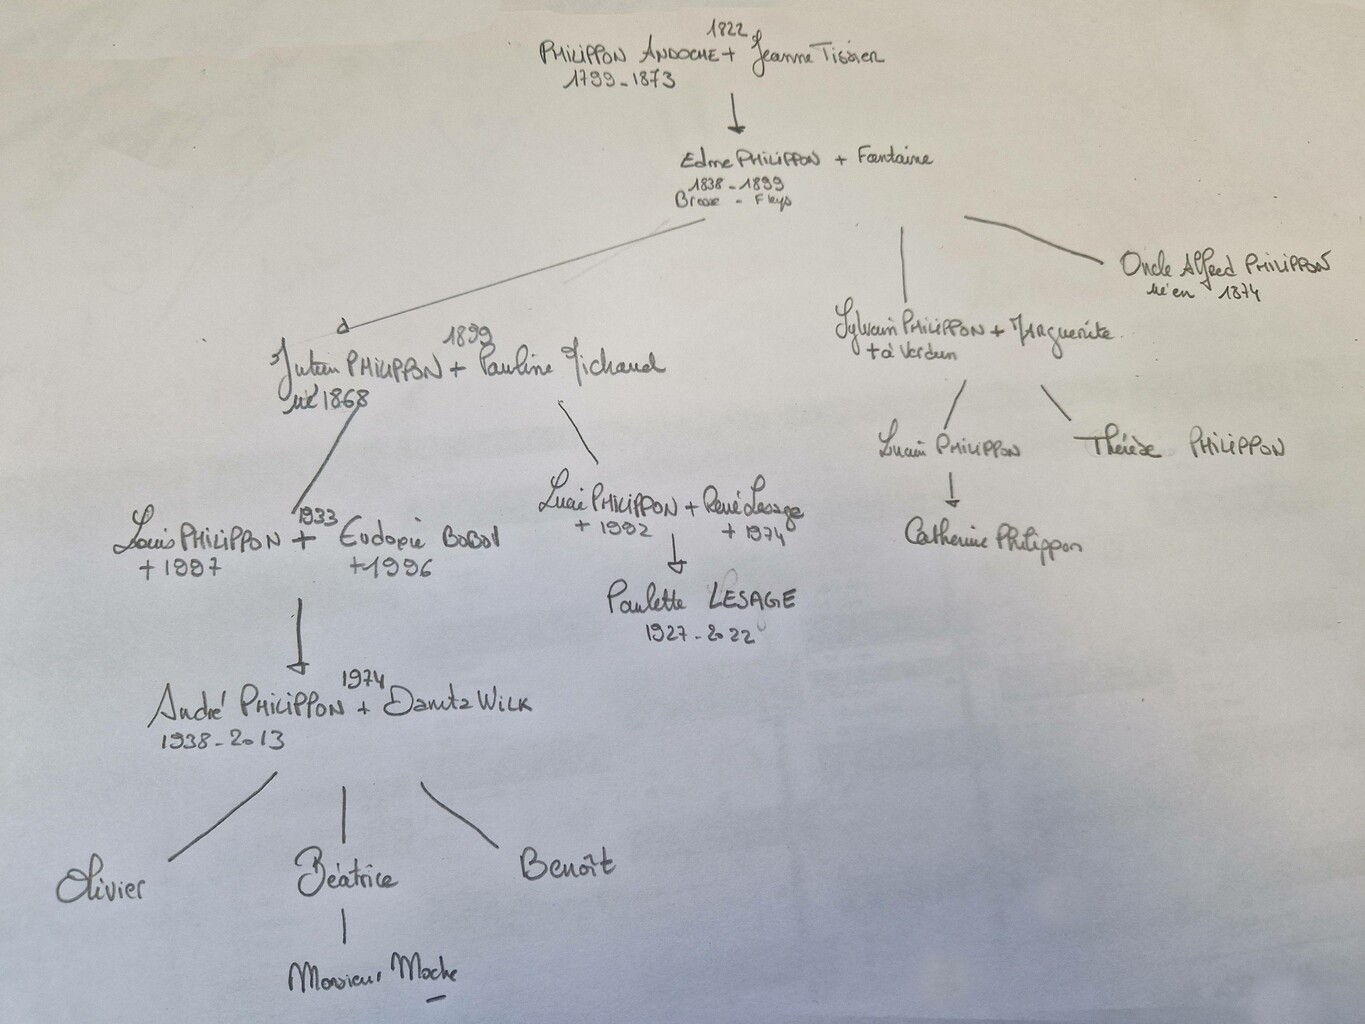 1822
PHILIPPON ANDOCHE + Jeanne Tissier
1799-1873
Edme PHILIPPON + Fontaine
1838-1899
Brosse - Fleys
Oncle Alfred PHILIPPON
né en 1874
Sylvain PHILIPPON + Marguerite
+ à Verdun
1899
PHILIPPON + Pauline Michaud
né 1868
Lucain PHILIPPON
Thérèse PHILIPPON
Catherine Philippon
PHILIPPON + René Lesage
+ 1992
+ 1974
Paulette LESAGE
1927-2022
1933
Louis PHILIPPON + Eudoxie
+ 1997
+ 1996
1974
André PHILIPPON + Danuta WILK
1938-2013
Olivier
Béatrice
Benoît
Monsieur Moche